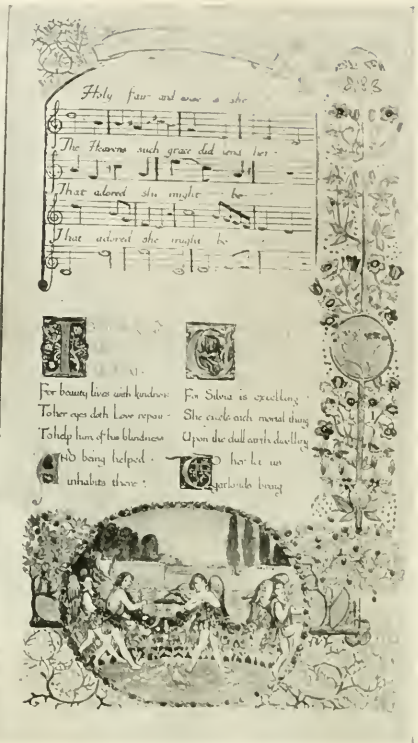 Holy fair and wise is she
The Heavens such grace did lend her
That adored she might be
That adored she might be
I
For beauty lives with kindness
To her eyes doth Love repair
To help him of his blindness
AND being helped
inhabits there :
For Silvia is excelling
She excels each mortal thing
Upon the dull earth dwelling
TO her let us
Garlands bring